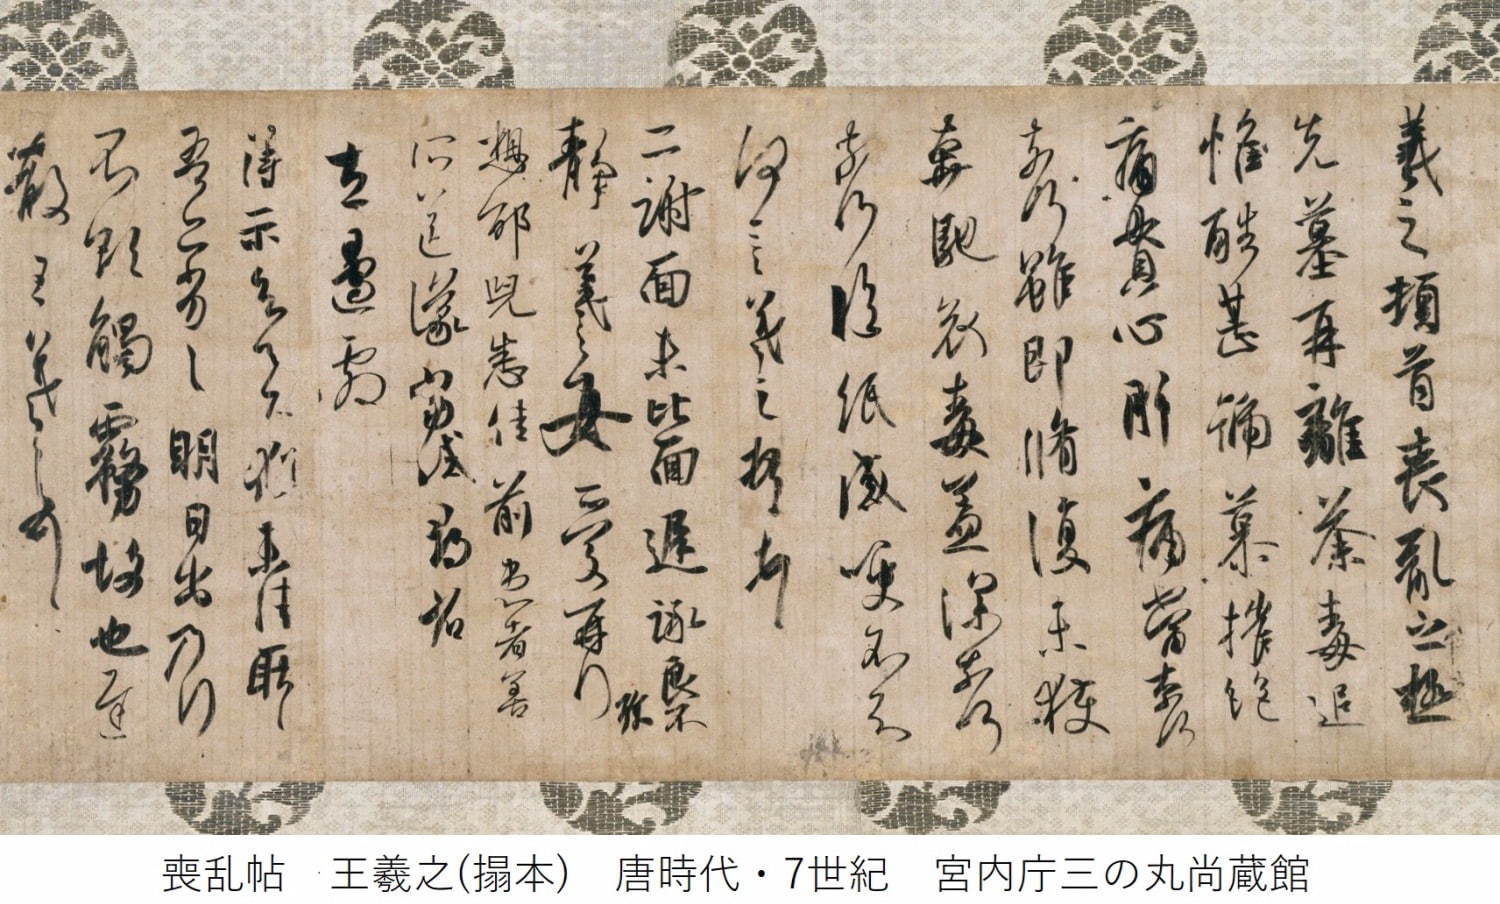 羲之頓首喪亂之極
先墓再離荼毒追
惟酷甚號慕摧絕
痛貫心肝痛當奈何
奈何雖即脩復未獲
奔馳哀毒益深奈何
奈何臨紙感哽不知
何言羲之頓首頓首
二謝面未比面遲詠良不
静羲之女愛再拜
想邵兒悉佳前患者善
所送議當試尋省
左邊劇
得示知足下猶未佳耿耿
吾亦劣劣明日出乃行
不欲觸霧故也遲
散王羲之頓首
喪乱帖 王羲之(搨本) 唐時代・7世紀 宮内庁三の丸尚蔵館